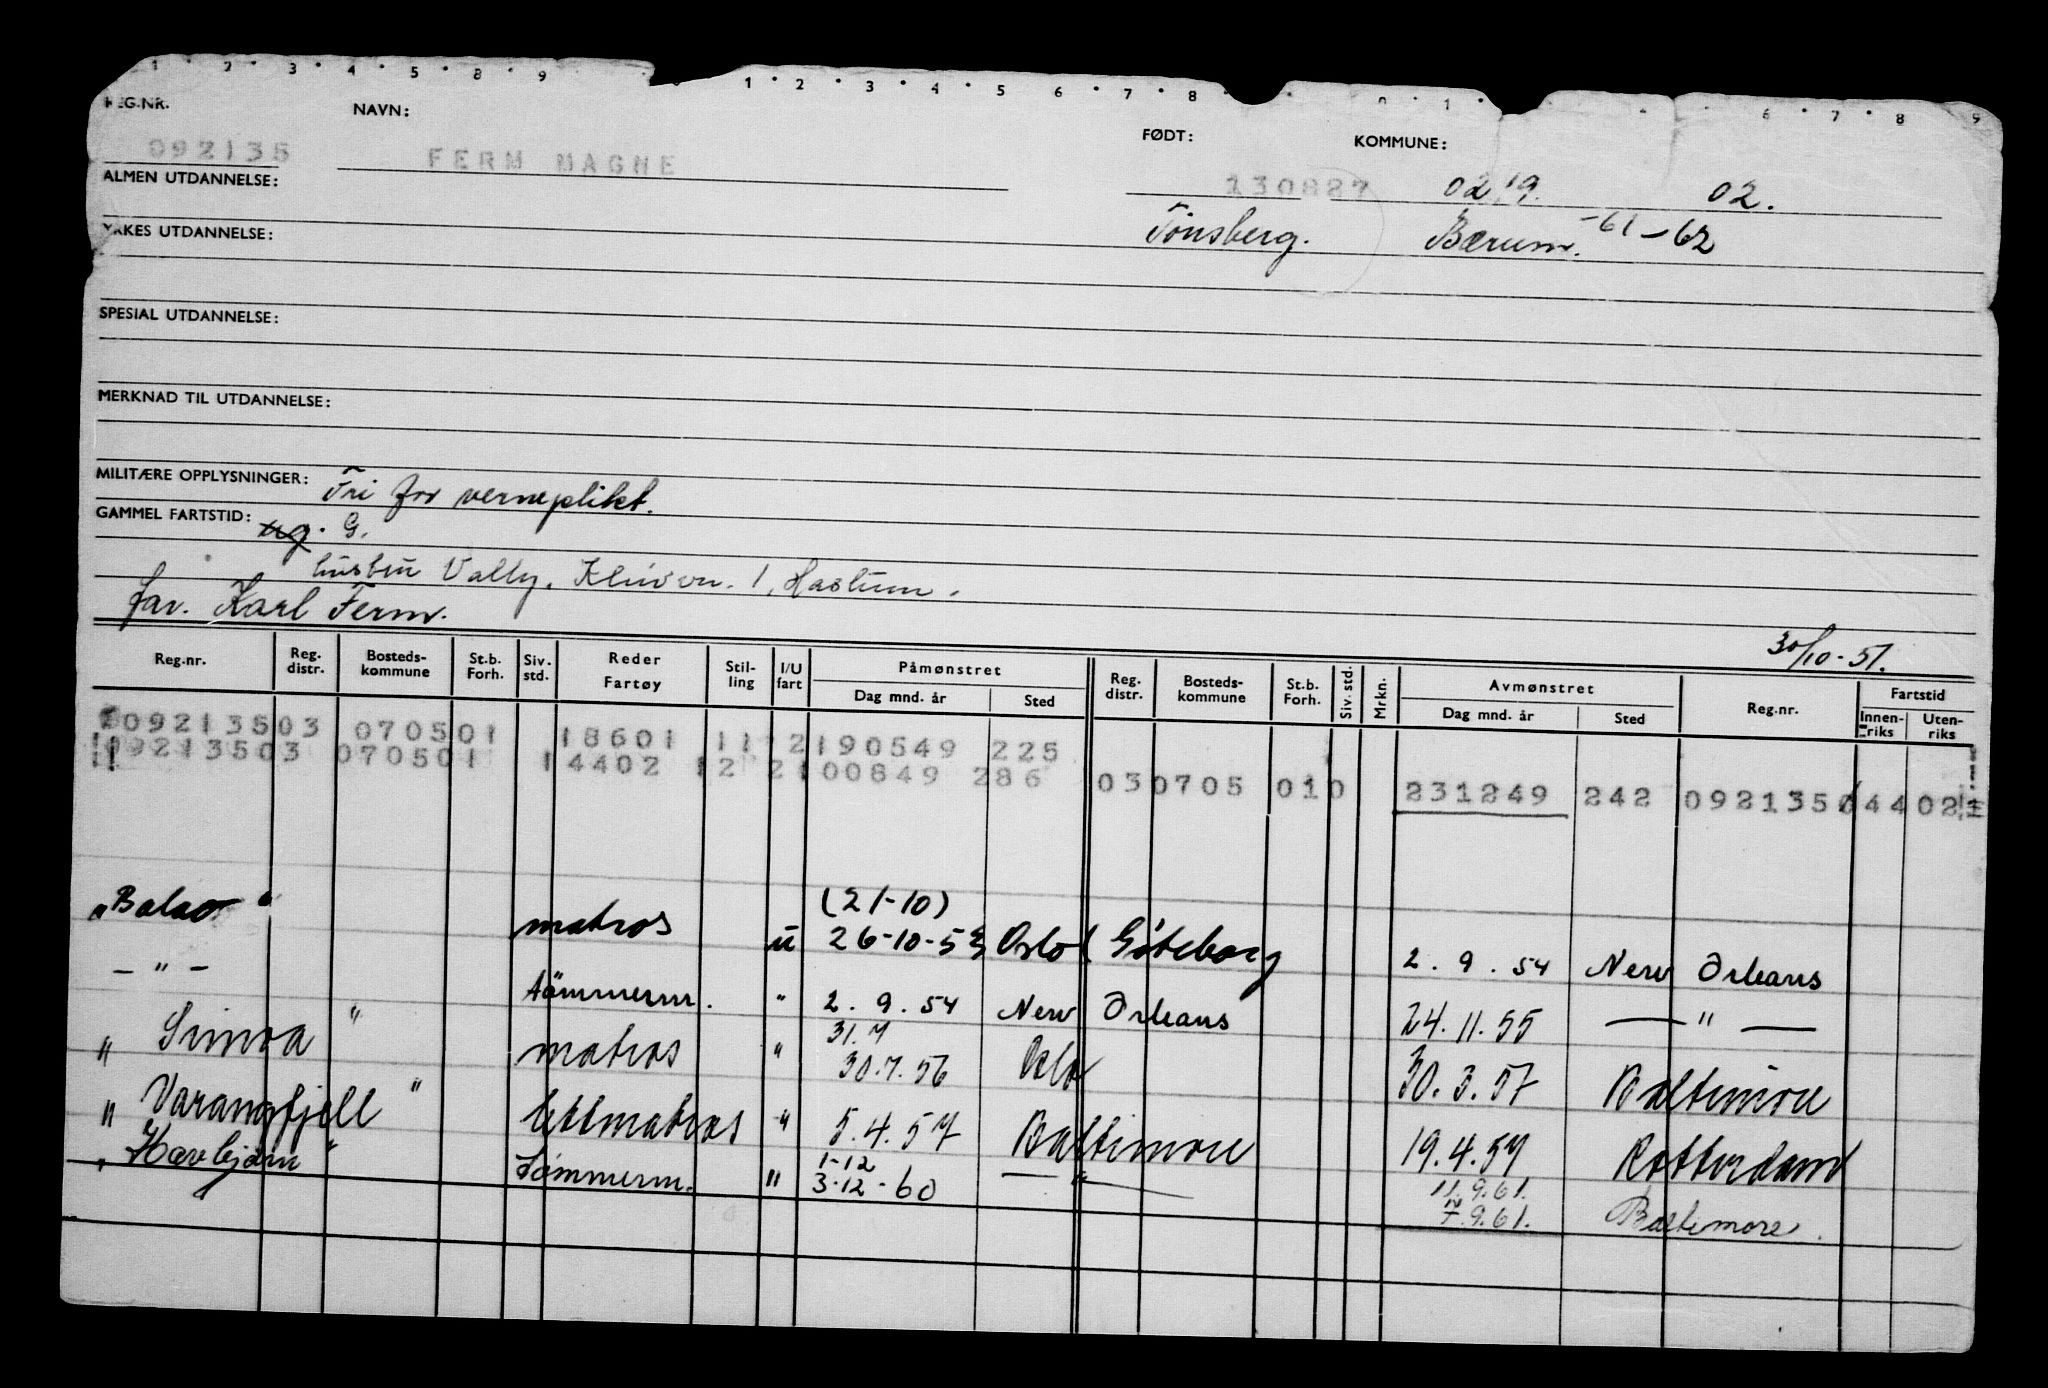 1 · 2 · 3 · 4 · 5 · 8 · 9 1 · 2 · 3 · 4 · 5 6 · 7 · 8 · 1 · 6 · 7 · 8 9
REG.NR. NAVN: FØDT: KOMMUNE:
092135 FERM MAGNE 130827 0219. 02.
ALMEN UTDANNELSE:
Tönsberg. Bærum. -61-62
YRKES UTDANNELSE:
SPESIAL UTDANNELSE:
MERKNAD TIL UTDANNELSE:
MILITÆRE OPPLYSNINGER: Fri for verneplikt.
GAMMEL FARTSTID: ug. G.
hustru Vally, 1, Haslum.
far. Karl Ferm.
30/10-51.
Reg.nr. Reg. distr. Bosteds-kommune St.b. Forh. Siv. std. Reder Fartøy Stil-ling I/U fart Påmønstret Dag mnd. år Sted Reg. distr. Bosteds-kommune St.b. Forh. Siv. std. Mrkn. Avmønstret Dag mnd. år Sted Reg.nr. Fartstid Innen-riks Uten-riks
09213503 070501 18601 11 2 190549 225
09213503 070501 1 4402 12 2 100849 286 03 0705 010 231249 242 092135 4402
"Balao" matros u (21-10) 26-10-53 Oslo (Göteborg 2.9.54 New Orleans
- " - Tömmerm. " 2.9.54 New Orleans 24.11.55 — " —
" Simoa " matros " 31.7 30.7.56 Oslo 30.3.57 Baltimore
" Varangfjell " lettmatros " 5.4.57 Baltimore 19.4.57 Rotterdam
" Havbjörn " Tömmerm. " 1-12 3-12-60 — " — 11.9.61. 7.9.61. Baltimore.